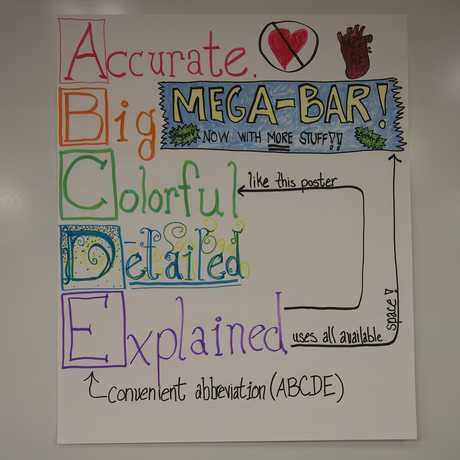 Accurate.
Big
MEGA-BAR!
NOW WITH MORE STUFF!!
Colorful
like this poster
Detailed
Explained
uses all available
space!
convenient abbreviation (ABCDE)